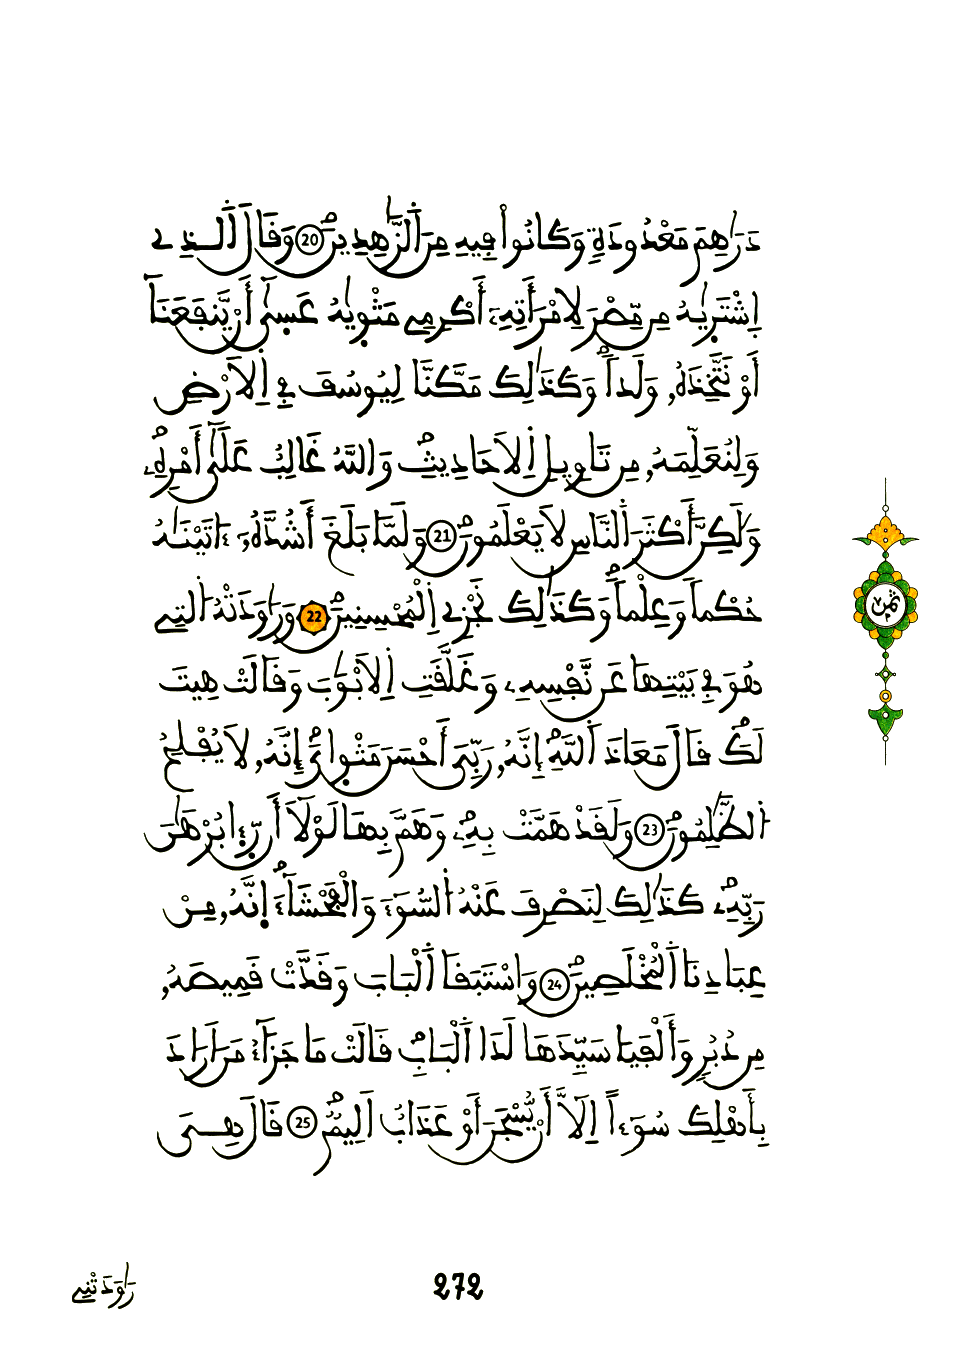 دَرَٰهِمَ مَعْدُودَةٖ وَكَانُواْ فِيهِ مِنَ اَ۬لزَّٰهِدِينَۖ 20 وَقَالَ اَ۬لذِے
اِ۪شْتَر۪يٰهُ مِن مِّصْرَ لِامْرَأَتِهِۦٓ أَكْرِمِے مَثْو۪يٰهُ عَس۪يٰٓ أَنْ يَّنفَعَنَآ
أَوْ نَتَّخِذَهُۥ وَلَداٗۖ وَكَذَٰلِكَ مَكَّنَّا لِيُوسُفَ فِے اِ۬لَارْضِ
وَلِنُعَلِّمَهُۥ مِن تَاوِيلِ اِ۬لَاحَادِيثِۖ وَاللَّهُ غَالِبٌ عَلَيٰٓ أَمْرِهِۦۖ
وَلَٰكِنَّ أَكْثَرَ اَ۬لنَّاسِ لَا يَعْلَمُونَۖ 21 وَلَمَّا بَلَغَ أَشُدَّهُۥٓ ءَاتَيْنَٰهُ
حُكْماٗ وَعِلْماٗۖ وَكَذَٰلِكَ نَجْزِے اِ۬لْمُحْسِنِينَۖ 22 وَرَٰوَدَتْهُ اُ۬لتِے
هُوَ فِے بَيْتِهَا عَن نَّفْسِهِۦ وَغَلَّقَتِ اِ۬لَابْوَٰبَ وَقَالَتْ هِيتَ
لَكَۖ قَالَ مَعَاذَ اَ۬للَّهِۖ إِنَّهُۥ رَبِّيَ أَحْسَنَ مَثْو۪ايَۖ إِنَّهُۥ لَا يُفْلِحُ
اُ۬لظَّٰلِمُونَۖ 23 وَلَقَدْ هَمَّتْ بِهِۦۖ وَهَمَّ بِهَا لَوْلَآ أَن رّ۪ء۪ا بُرْهَٰنَ
رَبِّهِۦۖ كَذَٰلِكَ لِنَصْرِفَ عَنْهُ اُ۬لسُّوٓءَ وَالْفَحْشَآءَۖ اِنَّهُۥ مِنْ
عِبَادِنَا اَ۬لْمُخْلَصِينَۖ 24 وَاسْتَبَقَا اَ۬لْبَابَ وَقَدَّتْ قَمِيصَهُۥ
مِن دُبُرٖ وَأَلْفَيَا سَيِّدَهَا لَدَا اَ۬لْبَابِۖ قَالَتْ مَا جَزَآءُ مَنَ اَرَادَ
بِأَهْلِكَ سُوٓءاً اِلَّآ أَنْ يُّسْجَنَ أَوْ عَذَابٌ اَلِيمٌۖ 25 قَالَ هِيَ
ثمن
رَٰوَدَتْنِے
272